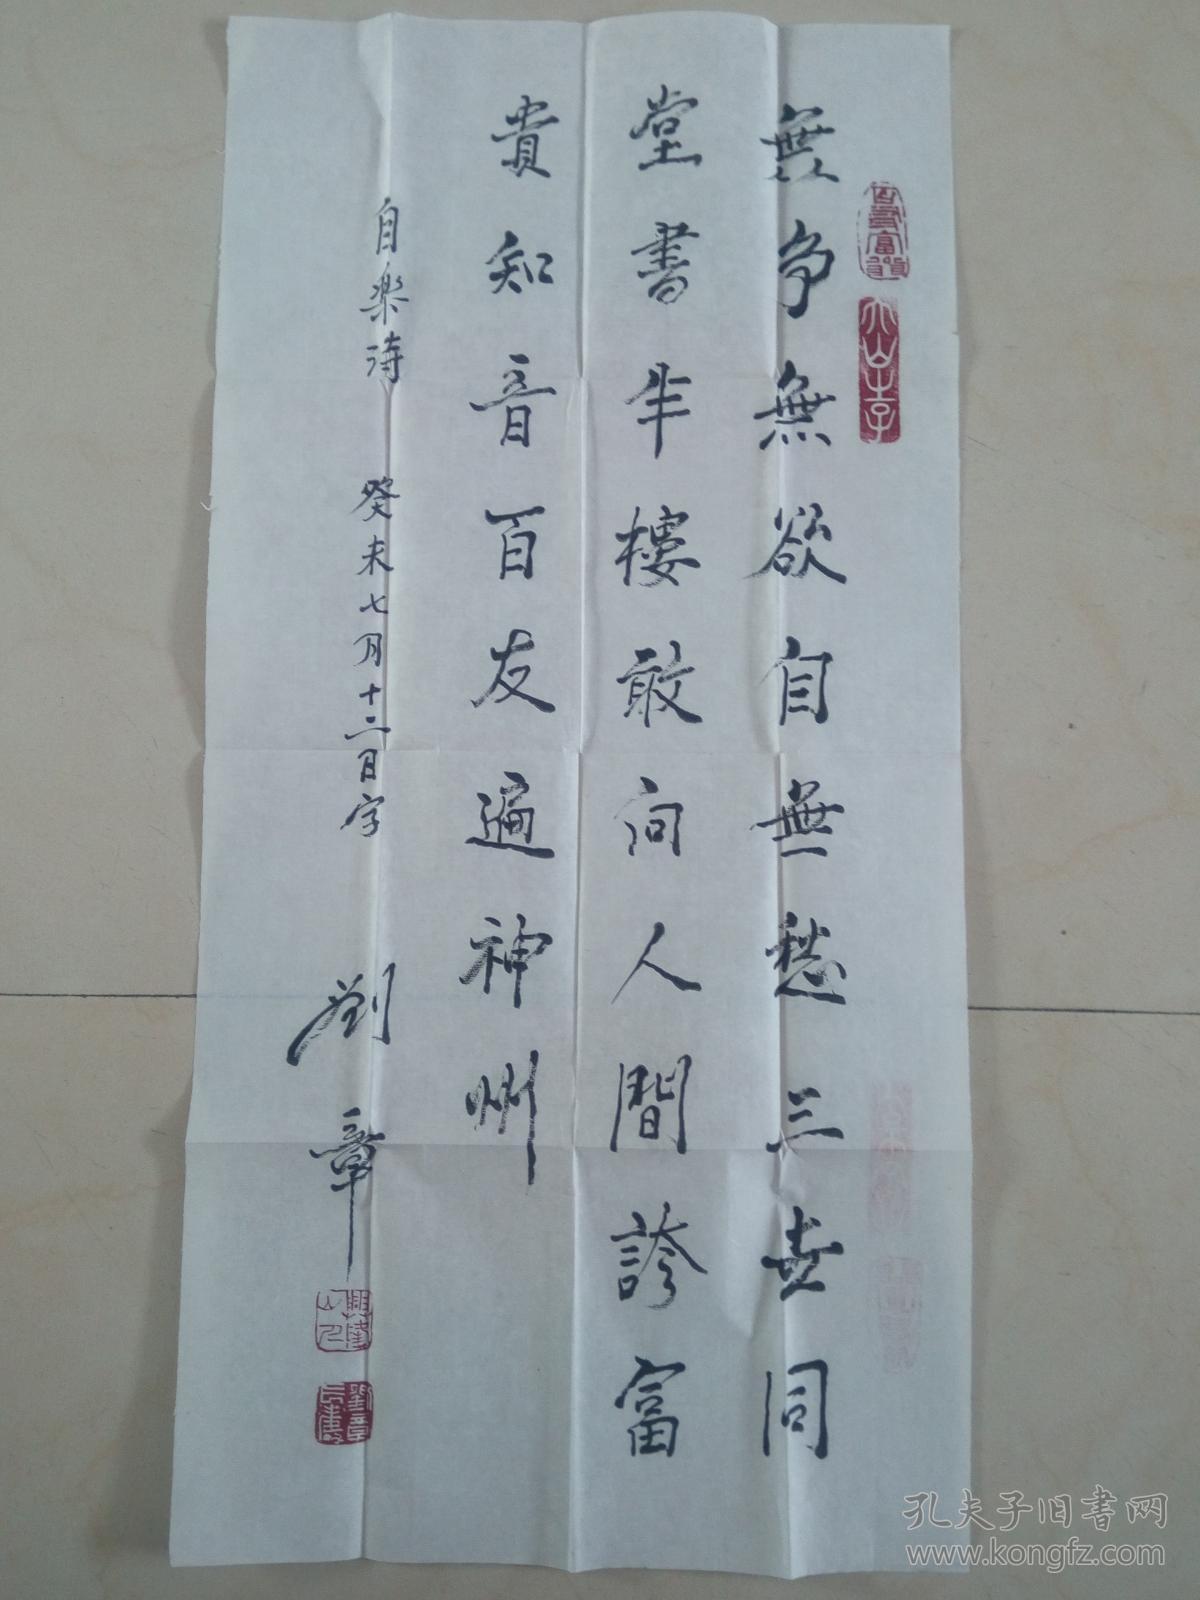 無争無欲自無愁三世同
堂書半樓敢向人間誇富
貴知音百友遍神州
自樂诗 癸未七月十二日字
劉章
大山之子
興隆山人
劉章
孔夫子旧書网
www.kongfz.com